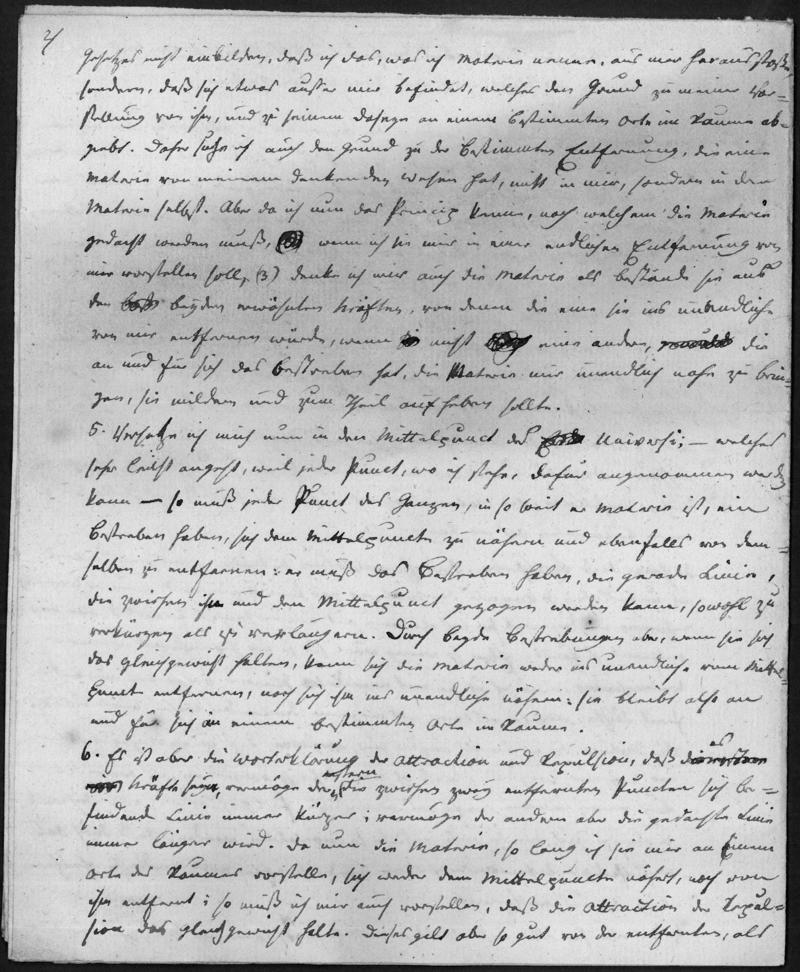 2/
Gesetzes nicht einbilden, daß ich das, was ich Materie nenne, aus mir herausstoße,
sondern, daß sich etwas außer mir befindet, welches den Grund zu meiner Vor=
stellung von ihm, und zu seinem Daseyn an einem bestimmten Orte im Raume ab=
giebt. Daher suche ich auch den Grund zu der bestimmten Entfernung, die eine
Materie von meinem denkenden Wesen hat, nicht in mir, sondern in der
Materie selbst. Aber da ich nun das Princip kenne, nach welchem die Materie
gedacht werden muß, wenn ich sie mir in einer endlichen Entfernung von
mir vorstellen soll, (3) denke ich mir auch die Materie als bestände sie aus
den beyden erwähnten Kräften, von denen die eine sie ins unendliche
von mir entfernen würde, wenn nicht eine andere, die
an und für sich das Bestreben hat, die Materie mir unendlich nahe zu brin=
gen, sie mildern und zum Theil aufheben sollte.
5. Versetze ich mich nun in den Mittelpunct des Universi; — welches
sehr leicht angeht, weil jeder Punct, wo ich stehe, dafür angenommen werden
kann — so muß jeder Punct des Ganzen, in so weit er Materie ist, ein
Bestreben haben, sich dem Mittelpuncte zu nähern und ebenfalls von dem=
selben zu entfernen: er muß das Bestreben haben, die gerade Linie,
die zwischen ihm und dem Mittelpunct gezogen werden kann, sowohl zu
verkürzen als zu verlängern. Durch beyde Bestrebungen aber, wenn sie sich
das Gleichgewicht halten, kann sich die Materie weder ins unendliche vom Mittel=
punct entfernen, noch sich ihm ins unendliche nähern: sie bleibt also an
und für sich in einem bestimmten Orte im Raume.
6. Es ist aber die Worterklärung der Attraction und Repulsion, daß es
Kräfte seyn, vermöge der erstern die zwischen zwey entfernten Puncten sich be=
findende Linie immer kürzer; vermöge der andern aber die gedachte Linie
immer länger wird. Da nun die Materie, so lang ich sie mir an Einem
Orte des Raumes vorstelle, sich weder dem Mittelpuncte nähert, noch von
ihm entfernt; so muß ich mir auch vorstellen, daß die Attraction der Repul=
sion das Gleichgewicht halte. Dieses gilt aber so gut von der entfernten, als